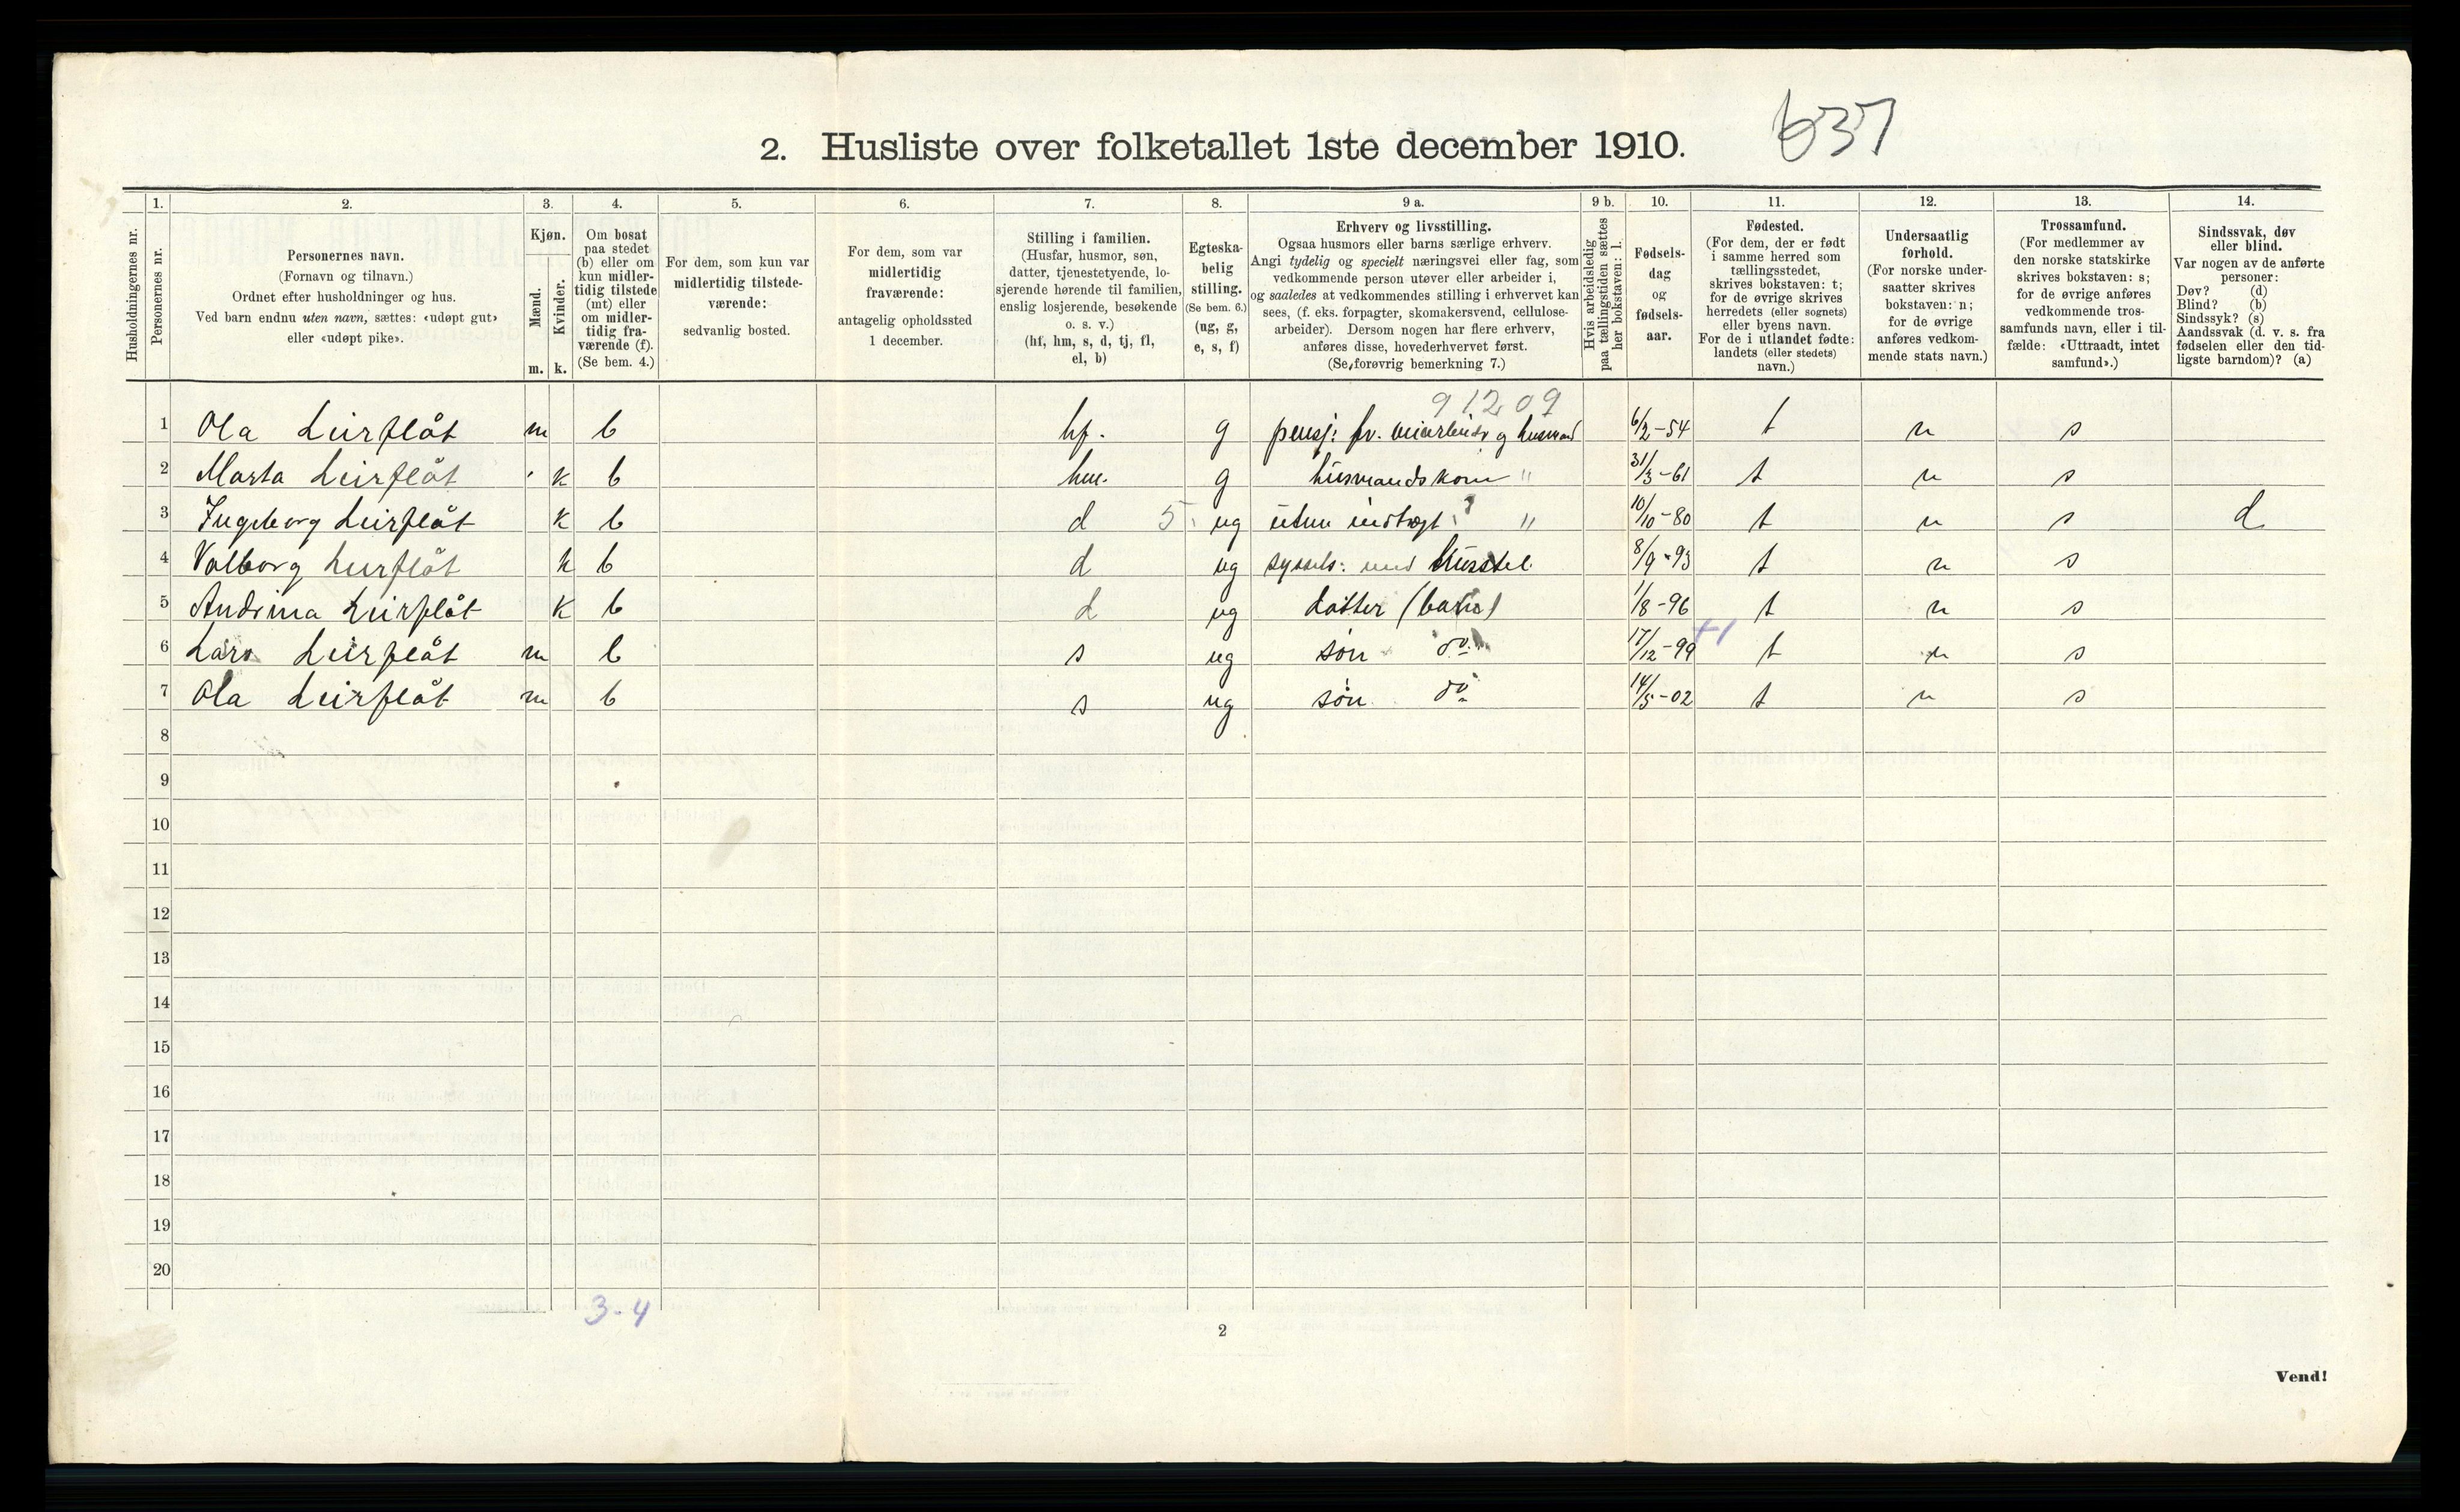 637
2. Husliste over folketallet 1ste december 1910.
Husholdningernes nr.
1.
Personernes nr.
2.
Personernes navn.
(Fornavn og tilnavn.)
Ordnet efter husholdninger og hus.
Ved barn endnu uten navn, sættes: «udøpt gut»
eller «udøpt pike».
3.
Kjøn.
Mænd.
Kvinder.
m. k.
4.
Om bosat
paa stedet
(b) eller om
kun midler-
tidig tilstede
(mt) eller
om midler-
tidig fra-
værende (f).
(Se bem. 4.)
5.
For dem, som kun var
midlertidig tilstede-
værende:
sedvanlig bosted.
6.
For dem, som var
midlertidig
fraværende:
antagelig opholdssted
1 december.
7.
Stilling i familien.
(Husfar, husmor, søn,
datter, tjenestetyende, lo-
sjerende hørende til familien,
enslig losjerende, besøkende
o. s. v.)
(hf, hm, s, d, tj, fl,
el, b)
8.
Egteska-
belig
stilling.
(Se bem. 6.)
(ug, g,
e, s, f)
9 a.
Erhverv og livsstilling.
Ogsaa husmors eller barns særlige erhverv.
Angi tydelig og specielt næringsvei eller fag, som
vedkommende person utøver eller arbeider i,
og saaledes at vedkommendes stilling i erhvervet kan
sees, (f. eks. forpagter, skomakersvend, cellulose-
arbeider). Dersom nogen har flere erhverv,
anføres disse, hovederhvervet først.
(Se forøvrig bemerkning 7.)
9 b.
Hvis arbeidsledig
paa tællingstiden sættes
her bokstaven: l.
10.
Fødsels-
dag
og
fødsels-
aar.
11.
Fødested.
(For dem, der er født
i samme herred som
tællingsstedet,
skrives bokstaven: t;
for de øvrige skrives
herredets (eller sognets)
eller byens navn.
For de i utlandet fødte:
landets (eller stedets)
navn.)
12.
Undersaatlig
forhold.
(For norske under-
saatter skrives
bokstaven: n;
for de øvrige
anføres vedkom-
mende stats navn.)
13.
Trossamfund.
(For medlemmer av
den norske statskirke
skrives bokstaven: s;
for de øvrige anføres
vedkommende tros-
samfunds navn, eller i til-
fælde: «Uttraadt, intet
samfund».)
14.
Sindssvak, døv
eller blind.
Var nogen av de anførte
personer:
Døv? (d)
Blind? (b)
Sindssyk? (s)
Aandssvak (d. v. s. fra
fødselen eller den tid-
ligste barndom)? (a)
91209
1 Ola Leirflåt m b hf. g pensj: fv. veiarbeider og husmand 6/2-54 t n s
2 Marta Leirflåt k b hm. g husmandskone " 31/3-61 t n s
3 Ingeborg Leirflåt k b d 5 ug uten indtægt " 10/10-80 t n s d
4 Valborg Leirflåt k b d ug syssels: med husstel 8/9-93 t n s
5 Andrina Leirflåt k b d ug datter (barn) 1/8-96 t n s
6 Lars Leirflåt m b s ug søn do 17/12-99 +1 t n s
7 Ola Leirflåt m b s ug søn do 14/5-02 t n s
8
9
10
11
12
13
14
15
16
17
18
19
20
3-4
2
Vend!